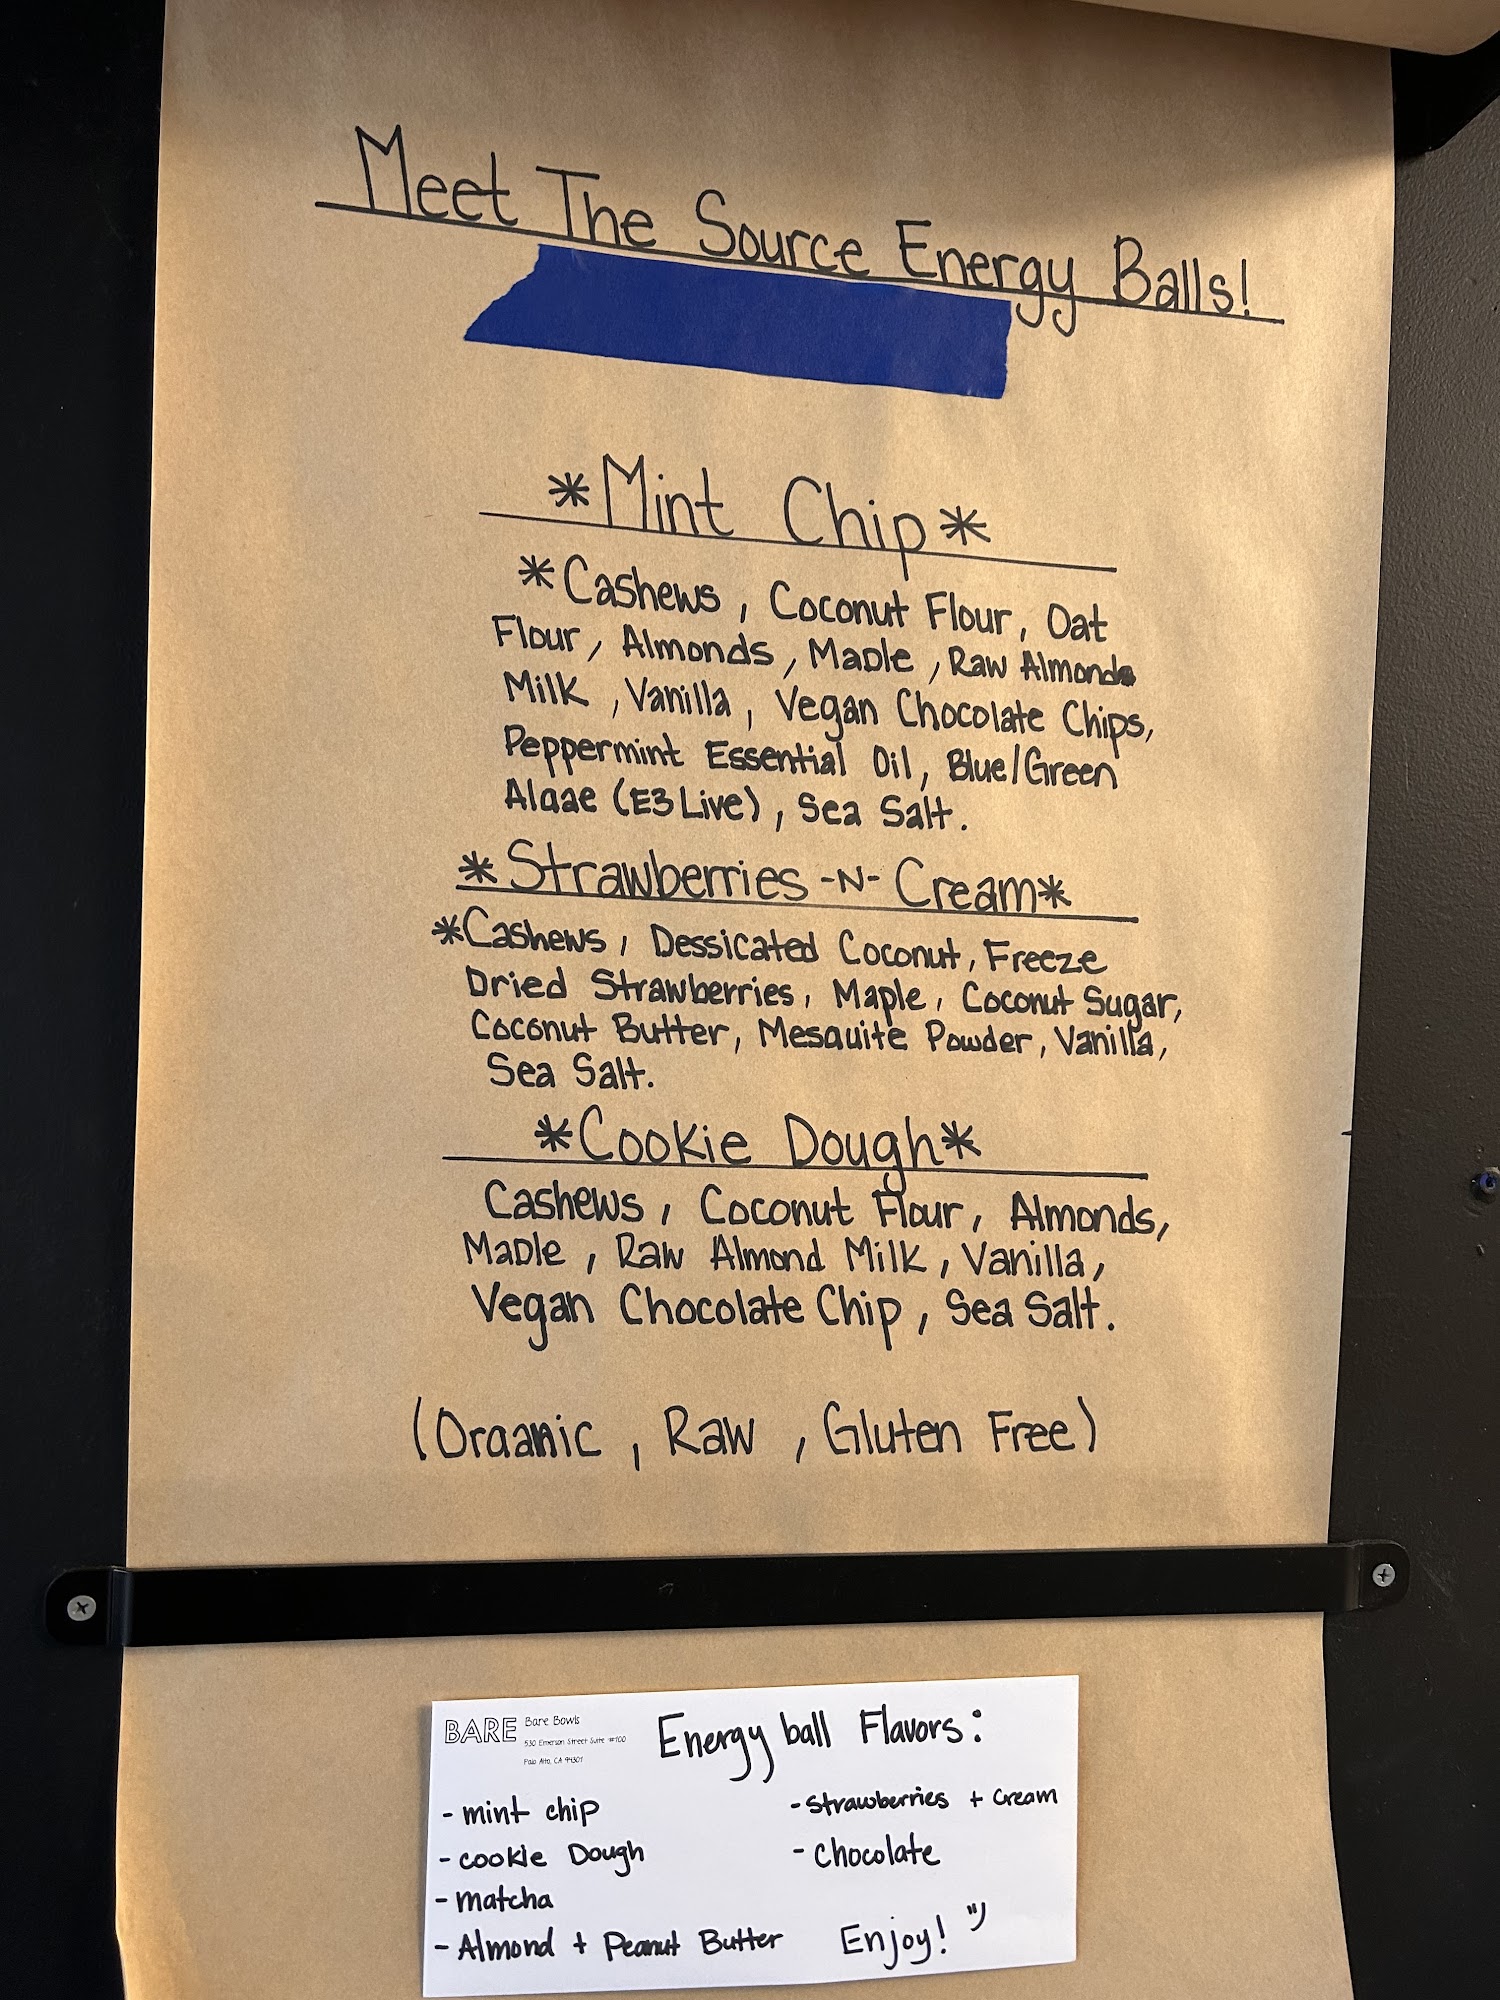 Meet The Source Energy Balls!
*Mint Chip*
*Cashews, Coconut Flour, Oat
Flour, Almonds, Maple, Raw Almond
Milk, Vanilla, Vegan Chocolate Chips,
Peppermint Essential Oil, Blue/Green
Algae (E3 Live), Sea Salt.
*Strawberries -N- Cream*
*Cashews, Dessicated Coconut, Freeze
Dried Strawberries, Maple, Coconut Sugar,
Coconut Butter, Mesquite Powder, Vanilla,
Sea Salt.
*Cookie Dough*
Cashews, Coconut Flour, Almonds,
Maple, Raw Almond Milk, Vanilla,
Vegan Chocolate Chip, Sea Salt.
(Organic, Raw, Gluten Free)
BARE
Bare Bowls
530 Emerson Street Suite #100
Palo Alto, CA 94301
Energy ball Flavors:
- mint chip
- cookie Dough
- matcha
- Almond + Peanut Butter
- Strawberries + Cream
- Chocolate
Enjoy! :)